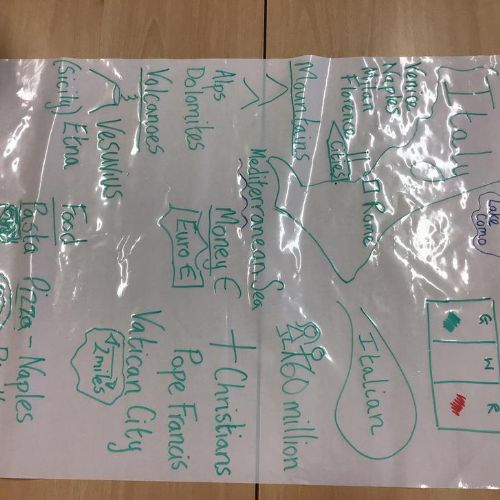 Italy
Lake
Como
G W R
Venice
Naples
Milan
Florence
Cities
Rome
Italian
Mountains
Mediterranean Sea
x60 million
Alps
Dolomites
Money €
Euro €
Christians
Pope Francis
Vatican City
2miles
Volcanoes
Vesuvius
(Sicily) Etna
Food
Pasta Pizza - Naples